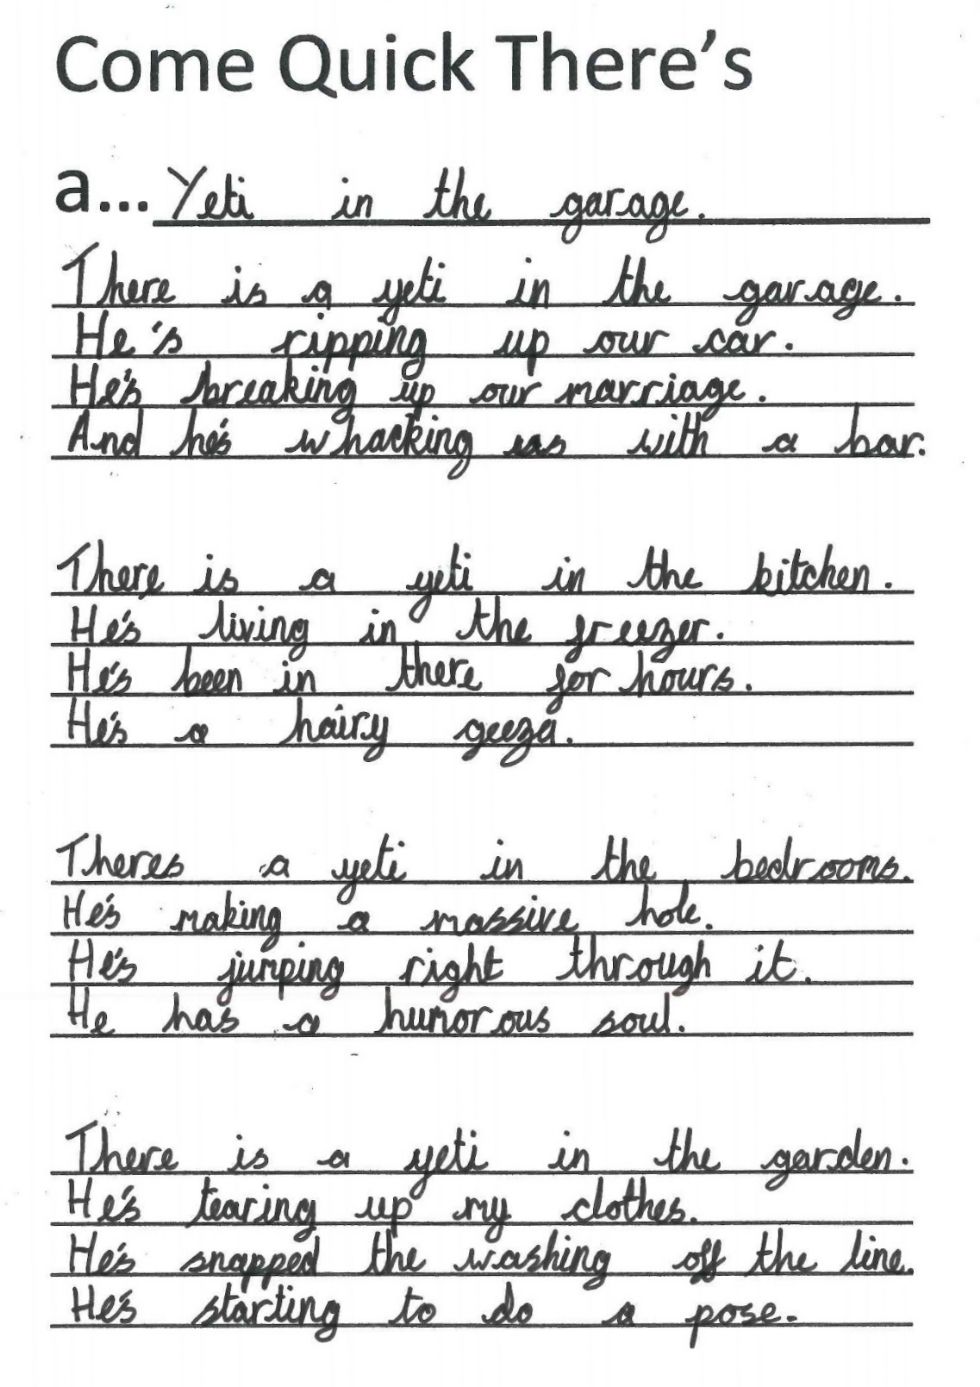 Come Quick There's
a... Yeti in the garage.
There is a yeti in the garage.
He's ripping up our car.
He's breaking up our marriage.
And he's whacking us with a bar.
There is a yeti in the kitchen.
He's living in the freezer.
He's been in there for hours.
He's a hairy geeza.
Theres a yeti in the bedrooms.
He's making a massive hole.
He's jumping right through it.
He has a humorous soul.
There is a yeti in the garden.
He's tearing up my clothes.
He's snapped the washing off the line.
He's starting to do a pose.